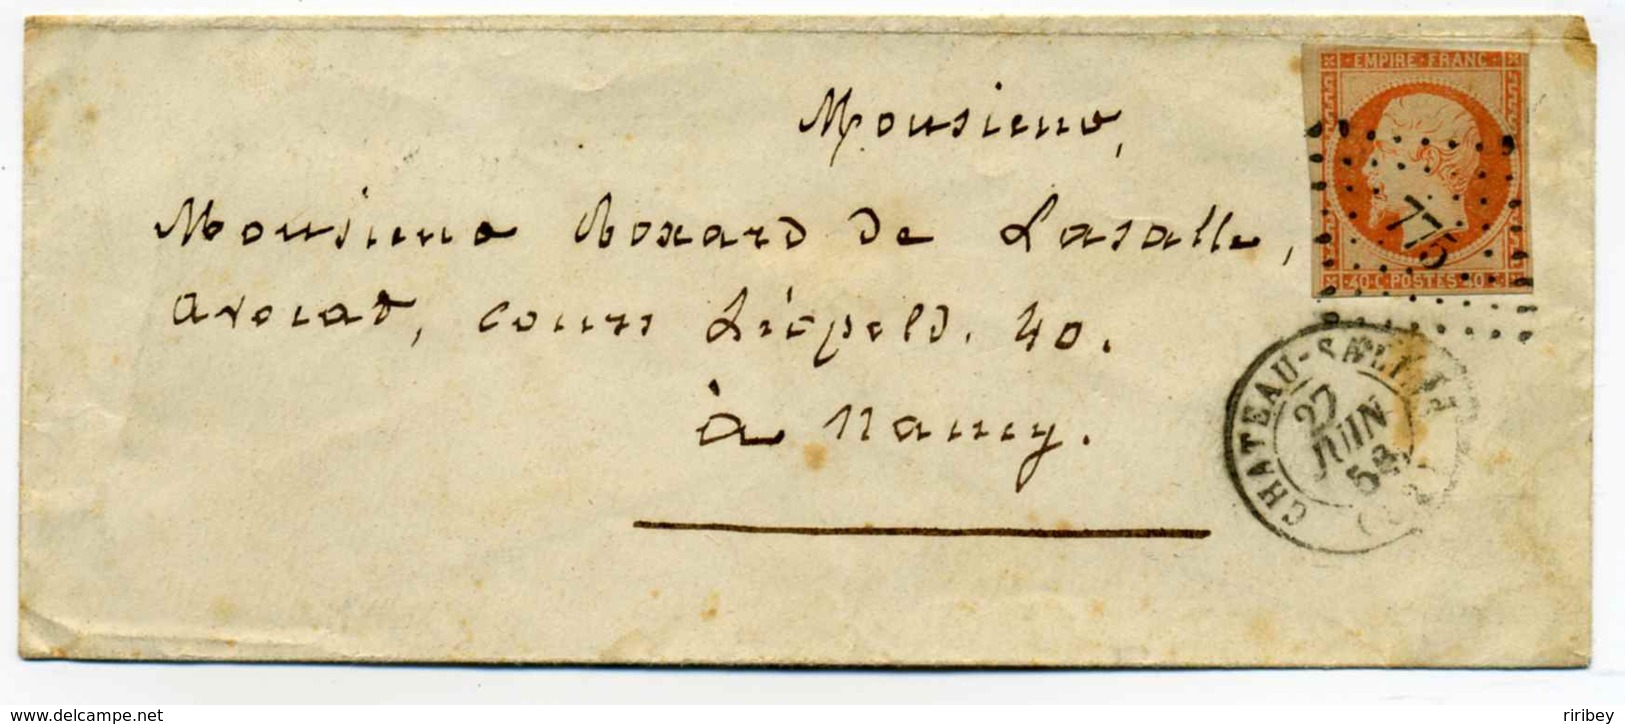 EMPIRE · FRANC ·
Monsieur,
Monsieur Roxard de Lasalle,
avocat, cours Léopold. 40.
à Nancy.
775
· 40 · C · POSTES · 40 · C ·
CHATEAU-SALINS
27
JUIN
58
riribey